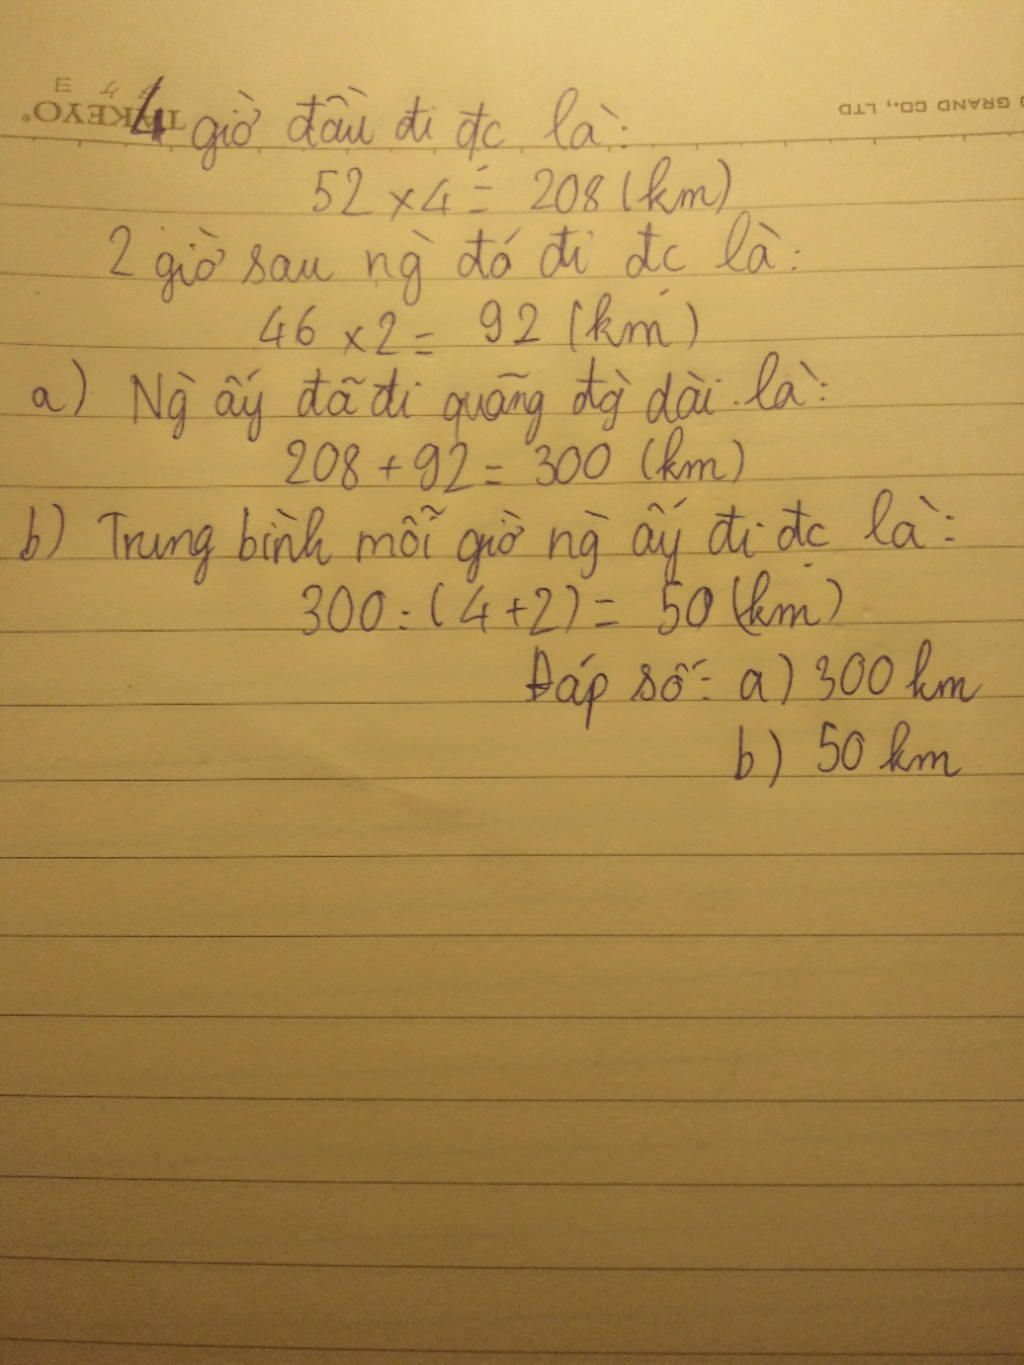 4 giờ đầu đi đc là:
52 x 4 = 208 (km)
2 giờ sau ng` đó đi đc là:
46 x 2 = 92 (km)
a) Ng` ấy đã đi quãng đg` dài là:
208 + 92 = 300 (km)
b) Trung bình mỗi giờ ng` ấy đi đc là:
300 : (4 + 2) = 50 (km)
Đáp số: a) 300 km
b) 50 km
TAKEYO®
GRAND CO., LTD